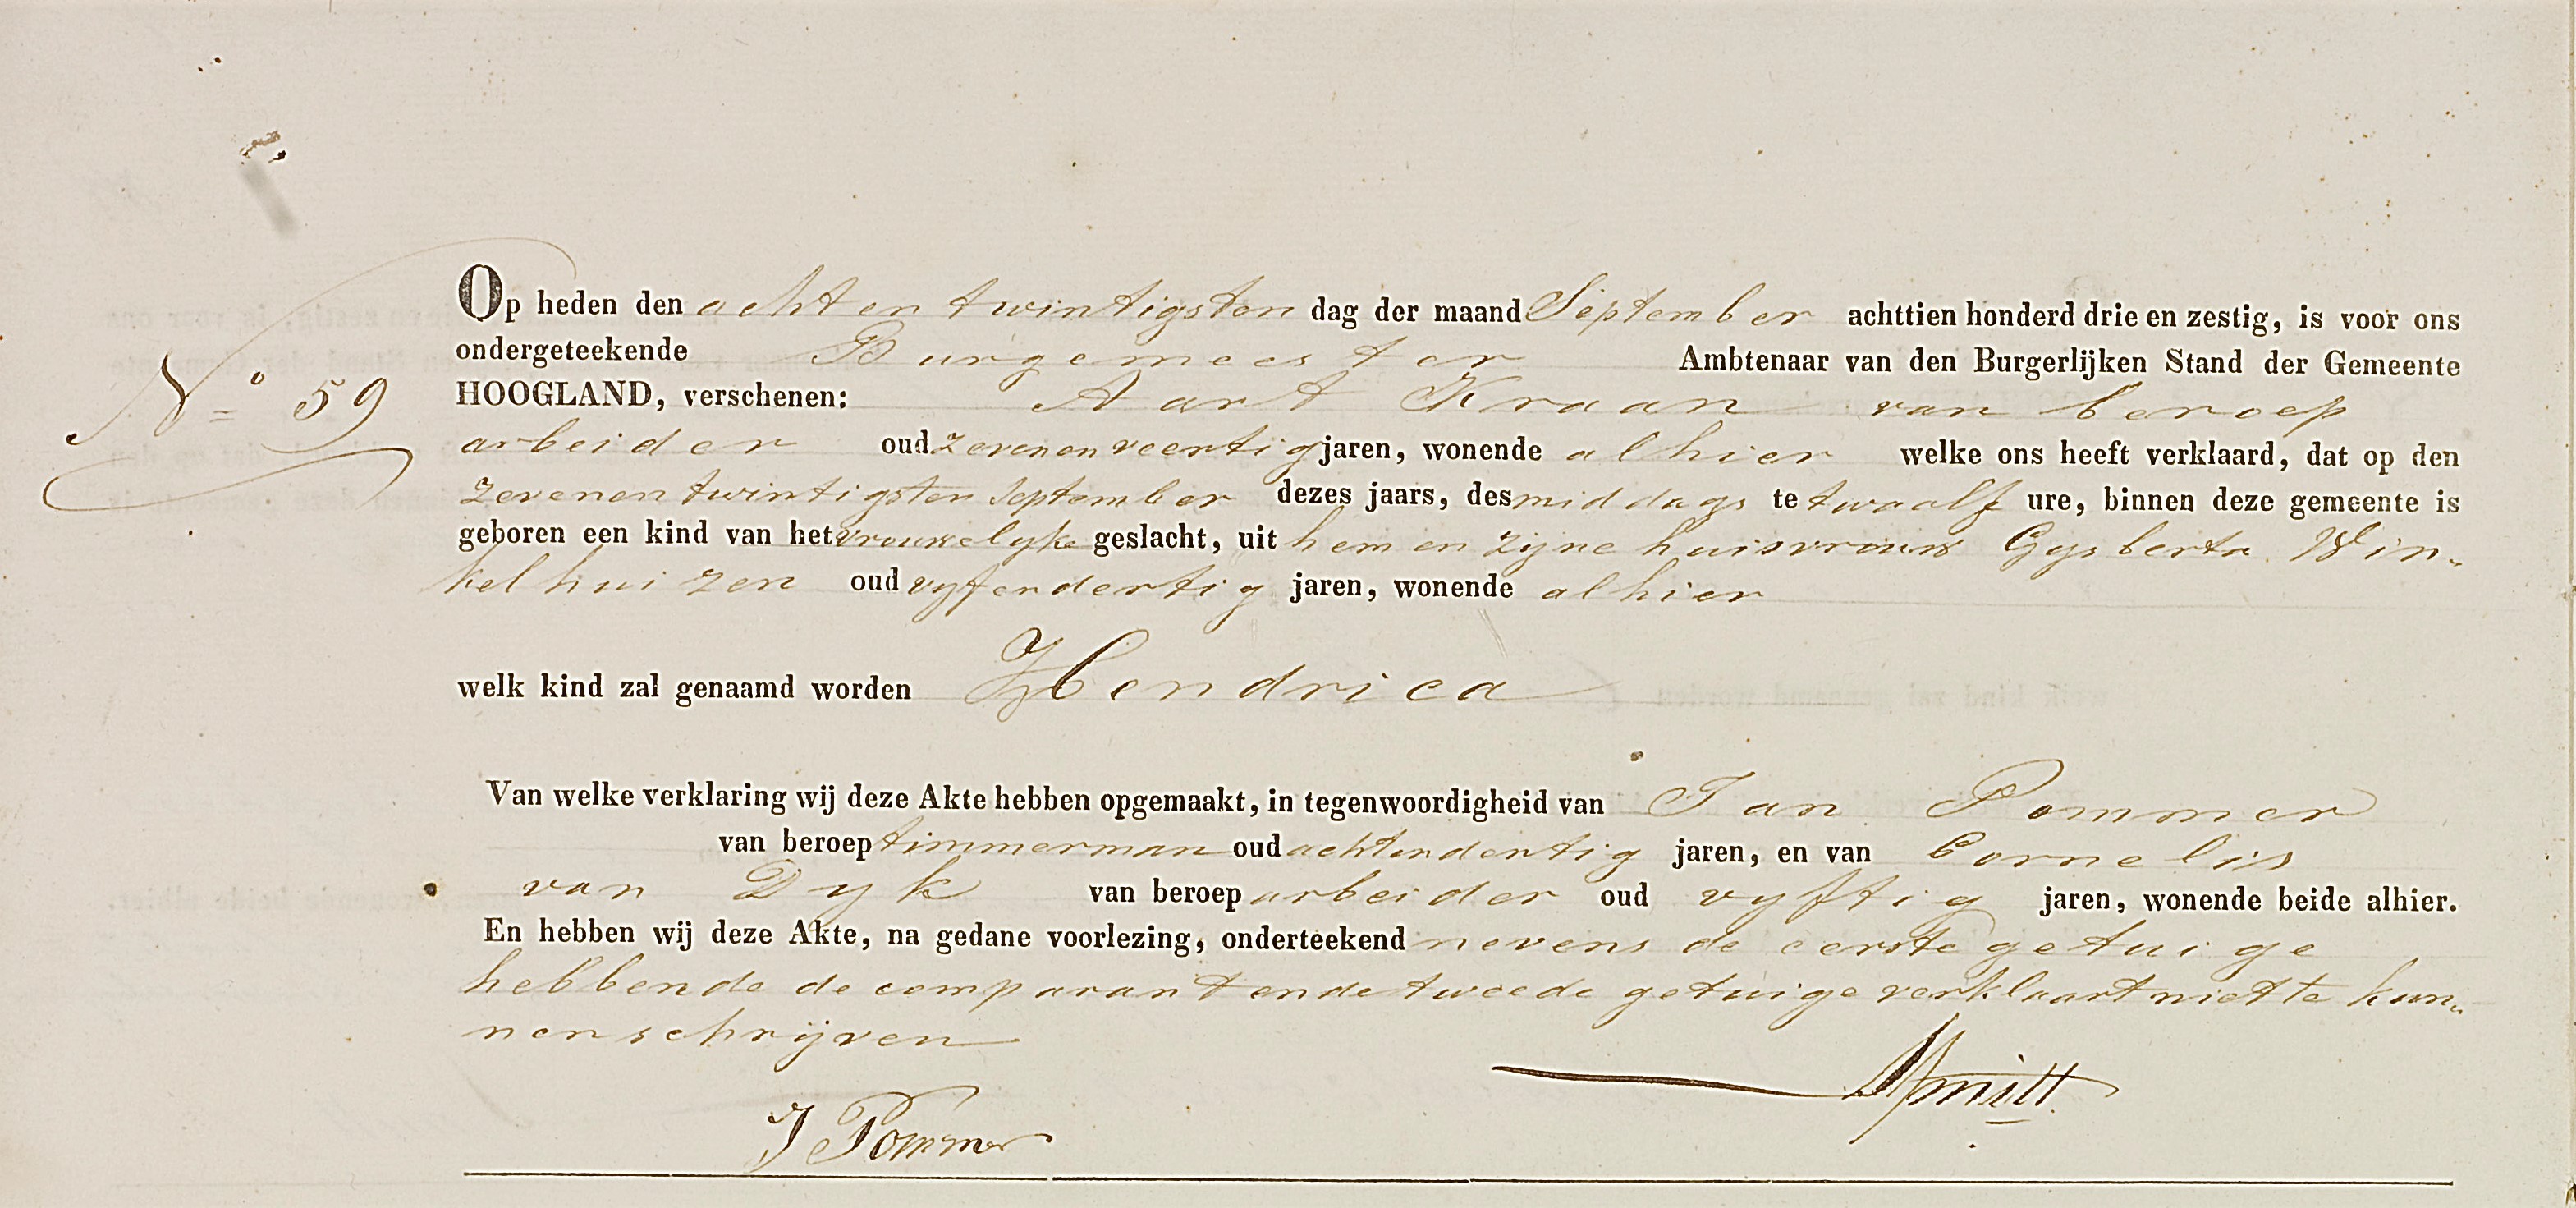 Op heden den acht en twintigsten dag der maand September achttien honderd drie en zestig, is voor ons
ondergeteekende Burgemeester Ambtenaar van den Burgerlijken Stand der Gemeente
No 59
HOOGLAND, verschenen: Aart Kraan van beroep
arbeider oud zevenenveertig jaren, wonende alhier welke ons heeft verklaard, dat op den
zevenentwintigsten September dezes jaars, des middags te twaalf ure, binnen deze gemeente is
geboren een kind van het vrouwelyke geslacht, uit hem en zijne huisvrouw Gysberta Win-
kelhuizen oud vyfendertig jaren, wonende alhier
welk kind zal genaamd worden Hendrica
Van welke verklaring wij deze Akte hebben opgemaakt, in tegenwoordigheid van Jan Pommer
van beroep timmerman oud achtendertig jaren, en van Cornelis
van Dyk van beroep arbeider oud vyftig jaren, wonende beide alhier.
En hebben wij deze Akte, na gedane voorlezing, onderteekend nevens de eerste getuige
hebbende de comparant en de tweede getuige verklaart niet te kun-
nen schrijven
J Pommer